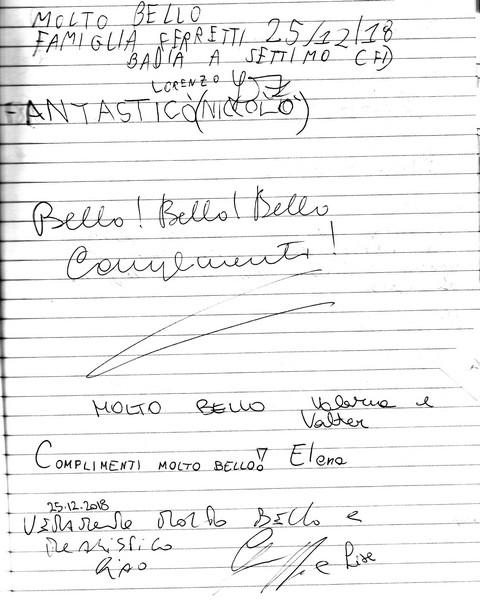 MOLTO BELLO
FAMIGLIA FERRETTI 25/12/18
BADIA A SETTIMO (FI)
LORENZO
FANTASTICO (NICCOLÒ)
Bello! Bello! Bello
Complimenti!
MOLTO BELLO Valeria e
Valter
COMPLIMENTI MOLTO BELLO! Elena
25.12.2018
Veramente molto BELLO e
Realistico
Ciao
e Lise